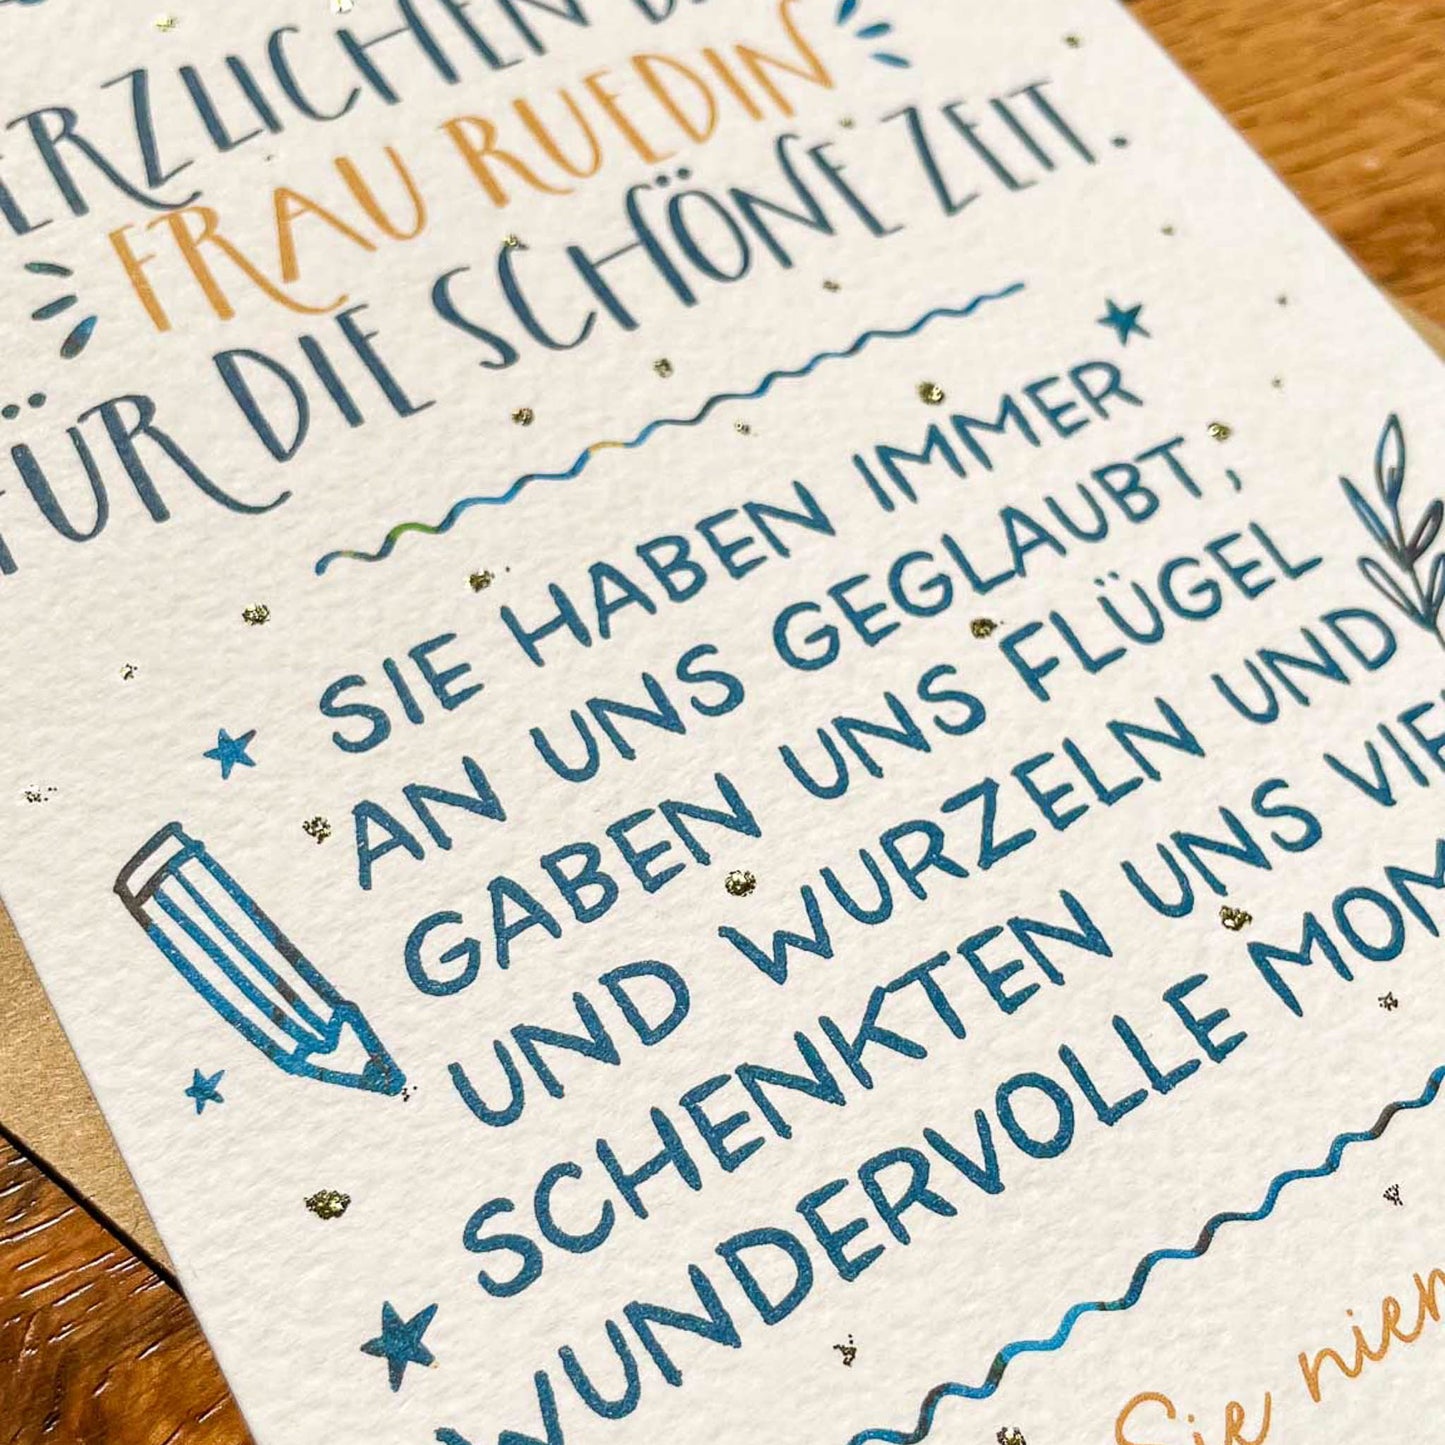 ERZLICHEN
FRAU RUEDIN
FÜR DIE SCHÖNE ZEIT.
SIE HABEN IMMER
AN UNS GEGLAUBT,
GABEN UNS FLÜGEL
UND WURZELN UND
SCHENKTEN UNS VIE
WUNDERVOLLE MOM
Sie nie